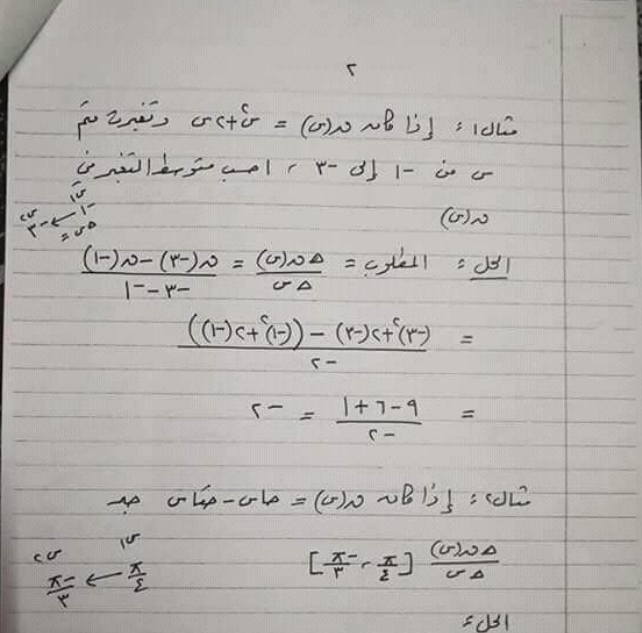 ٢
مثال١: إذا كانه ق(س) = س٢+٢س وتغيرت قيم
س من -١ إلى -٣ ، احسب متوسط التغير في
ق(س)
س١ س٢
-١ ← -٣
∆س =
الحل: المطلوب = ∆ق(س)/∆س = (ق(-٣) - ق(-١))/(-٣ - -١)
= ((-٣)٢+٢(-٣) - ((-١)٢+٢(-١)))/-٢
= (٩-٦+١)/-٢ = -٢
مثال٢: إذا كانه ق(س) = جاس - جتاس جد
∆ق(س)/∆س [π/٤ ، -π/٣]
س١ س٢
π/٤ ← -π/٣
الحل: